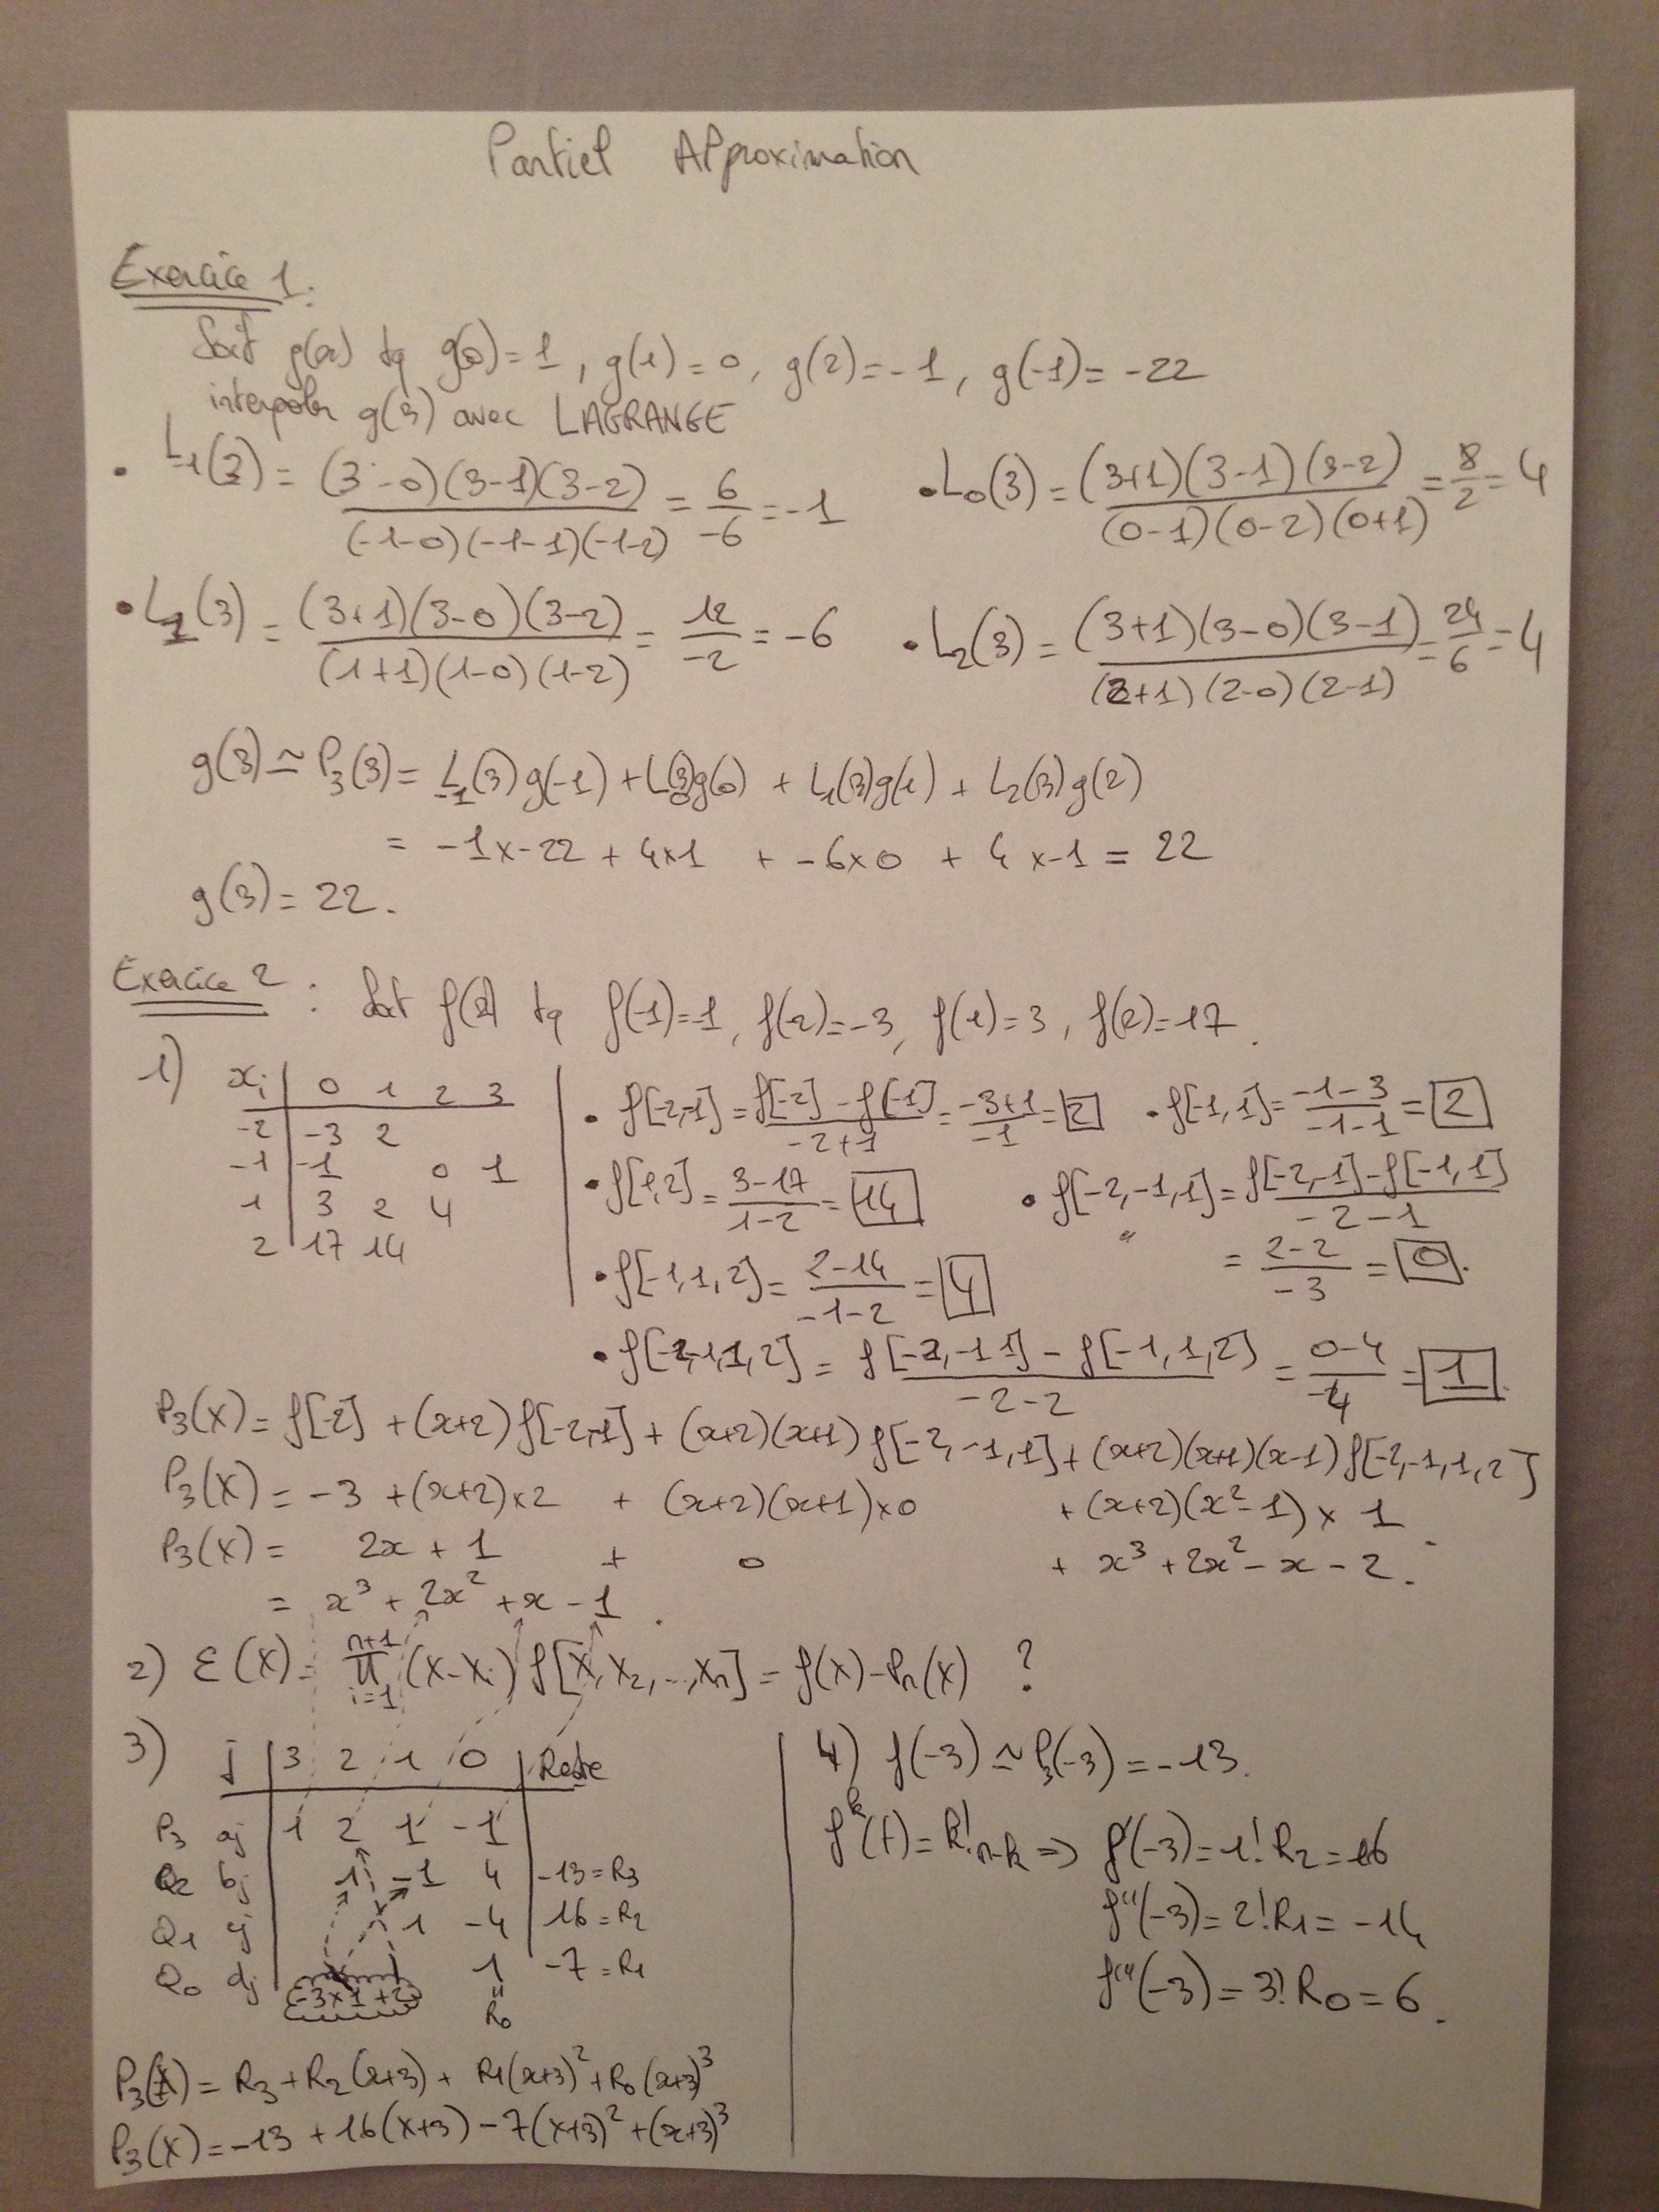 Partiel Approximation
Exercice 1:
Soit g(x) tq g(0)=1, g(1)=0, g(2)=-1, g(-1)=-22
interpoler g(3) avec LAGRANGE
• L-1(3) = (3-0)(3-1)(3-2) / (-1-0)(-1-1)(-1-2) = 6/-6 = -1
• L0(3) = (3+1)(3-1)(3-2) / (0-1)(0-2)(0+1) = 8/2 = 4
• L1(3) = (3+1)(3-0)(3-2) / (1+1)(1-0)(1-2) = 12/-2 = -6
• L2(3) = (3+1)(3-0)(3-1) / (2+1)(2-0)(2-1) = 24/6 = 4
g(3) ≃ P3(3) = L-1(3)g(-1) + L0(3)g(0) + L1(3)g(1) + L2(3)g(2)
= -1x-22 + 4x1 + -6x0 + 4x-1 = 22
g(3) = 22.
Exercice 2 : Soit f(x) tq f(-1)=-1, f(-2)=-3, f(1)=3, f(2)=17.
1)
xi | 0 1 2 3
-2 | -3 2
-1 | -1 0 1
1 | 3 2 4
2 | 17 14
• f[-2,-1] = f[-2] - f[-1] / -2+1 = -3+1 / -1 = 2
• f[-1,1] = -1-3 / -1-1 = 2
• f[1,2] = 3-17 / 1-2 = 14
• f[-2,-1,1] = f[-2,-1] - f[-1,1] / -2-1
= 2-2 / -3 = 0.
• f[-1,1,2] = 2-14 / -1-2 = 4
• f[-2,-1,1,2] = f[-2,-1 1] - f[-1,1,2] / -2-2 = 0-4 / -4 = 1.
P3(X) = f[-2] + (x+2)f[-2,-1] + (x+2)(x+1)f[-2,-1,1] + (x+2)(x+1)(x-1)f[-2,-1,1,2]
P3(X) = -3 + (x+2)x2 + (x+2)(x+1)x0 + (x+2)(x²-1) x 1
P3(X) = 2x + 1 + 0 + x³ + 2x² - x - 2.
= x³ + 2x² + x - 1.
2) ε(X) = n+1 ∏ i=1 (X-Xi) f[X,X2,..,Xn] = f(X) - Pn(X) ?
3)
j | 3 2 1 0 | Reste
P3 aj | 1 2 1 -1
Q2 bj | 1 -1 4 | -13 = R3
Q1 cj | 1 -4 | 16 = R2
Q0 dj | 1 | -7 = R1
-3x1+2
"
R0
P3(X) = R3 + R2(x+3) + R1(x+3)² + R0(x+3)³
P3(X) = -13 + 16(x+3) - 7(x+3)² + (x+3)³
4) f(-3) ≃ P3(-3) = -13.
f^k(t) = k! n-k => f'(-3) = 1! R2 = 16
f''(-3) = 2! R1 = -14
f'''(-3) = 3! R0 = 6.